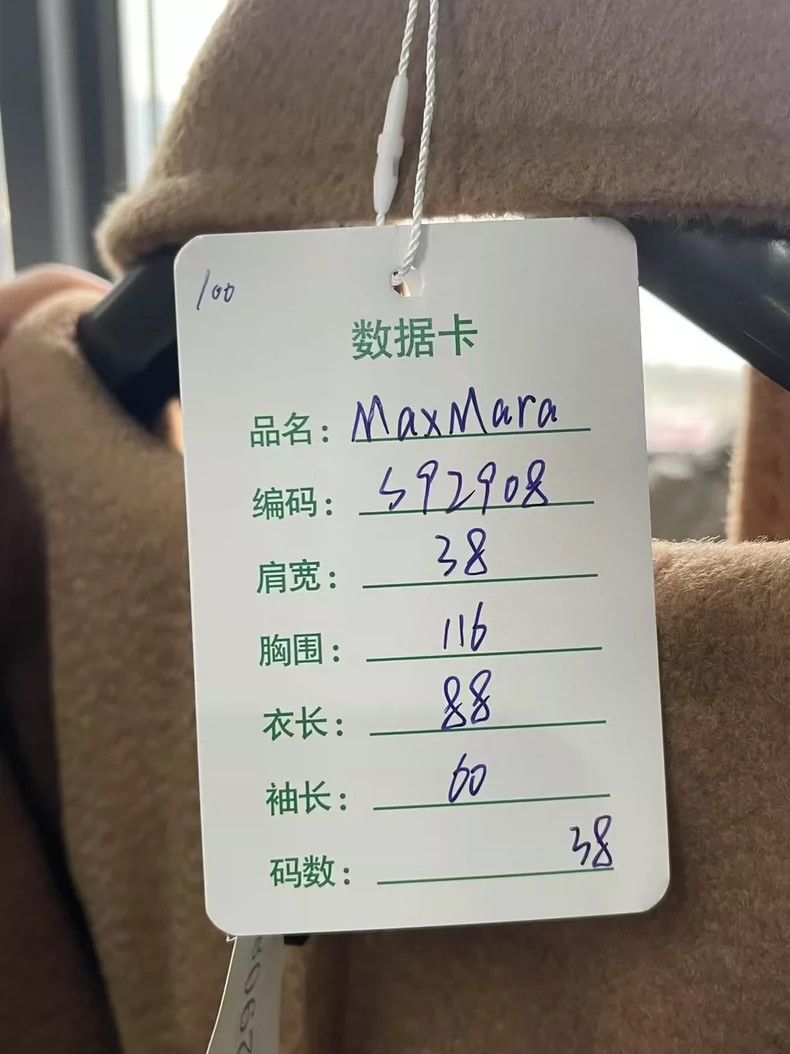 100
数据卡
品名：MaxMara
编码：592908
肩宽：38
胸围：116
衣长：88
袖长：60
码数：38